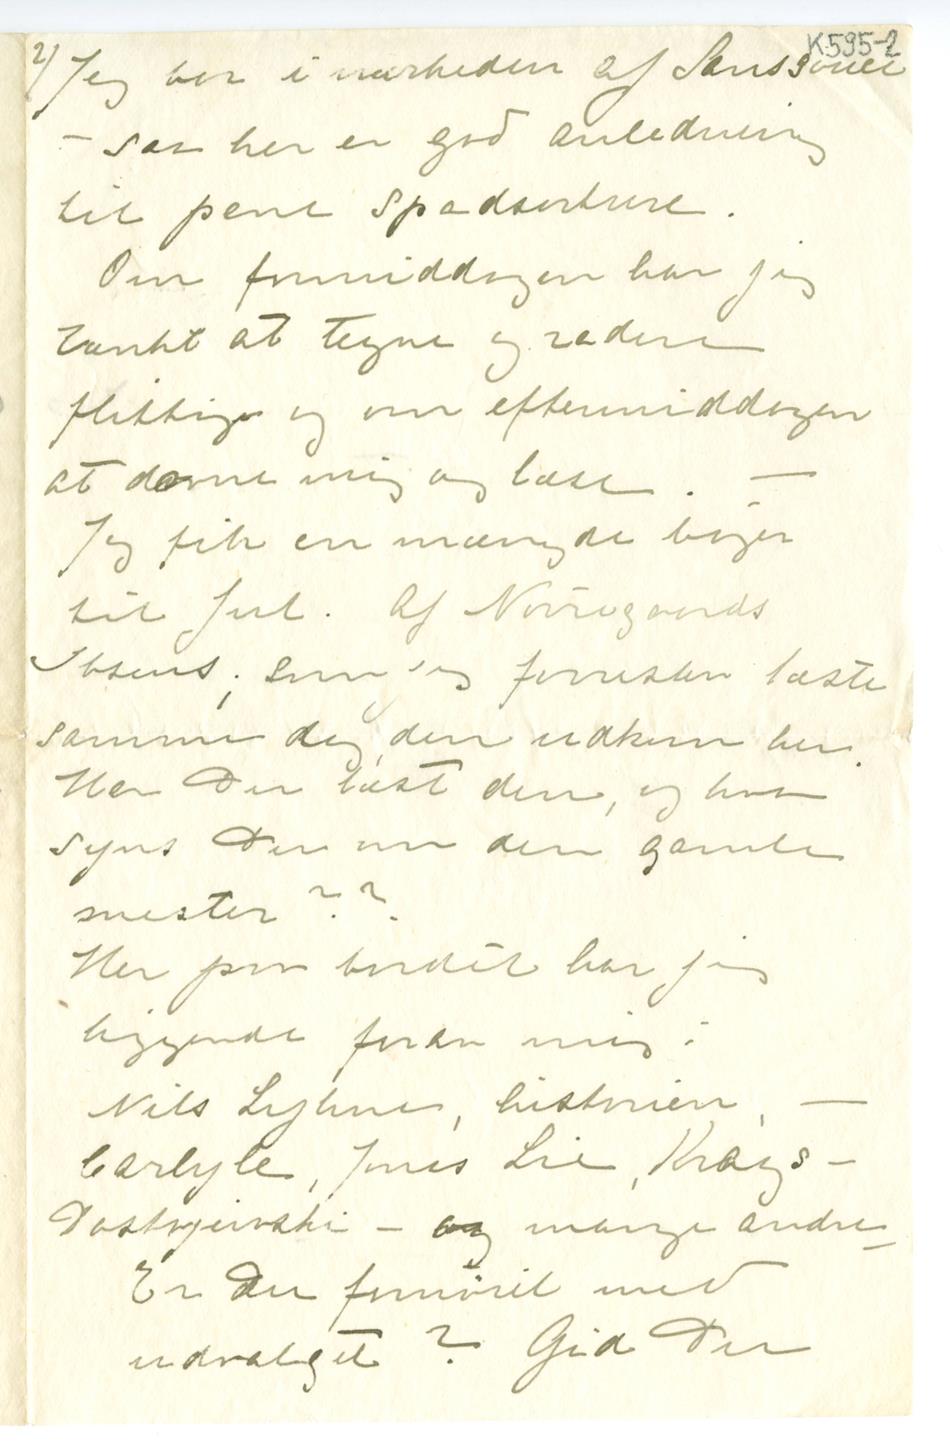 K595-2
2/ Jeg bor i nærheden af Sanssouci
– saa her er god anledning
til pene spadserture.
Om formiddagen har jeg
tænkt at tegne og radere
flittige og om eftermiddagen
at dovne mig og læse. —
Jeg fik en mængde bøger
til Jul. Af Nörregaards
Ibsens, som jeg forresten læste
samme dag den udkom her.
Har Du læst den, og hva
syns Du om den gamle
mester??
Her paa bordet har jeg
liggende foran mig:
Nils Lyhne, historien, —
Carlyle, Jonas Lie, Krags –
Dostojewski – og mange andre –
Er Du fornöiet med
udvalget? Gid Du